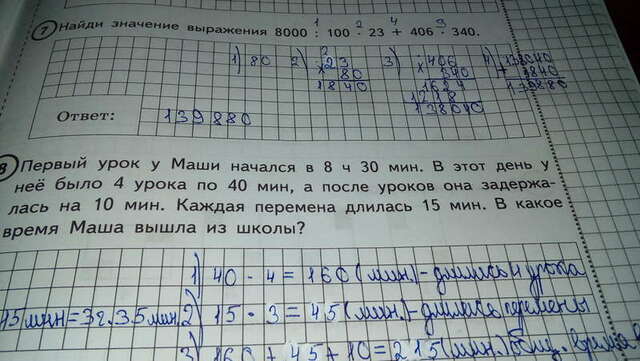 7 Найди значение выражения 8000 : 100 · 23 + 406 · 340.
1 2 4 3
1) 80 2) 23 3) 406 4) 138040
× 80 × 340 + 1840
1840 1624 139880
1218
138040
Ответ: 139880
8 Первый урок у Маши начался в 8 ч 30 мин. В этот день у
неё было 4 урока по 40 мин, а после уроков она задержа-
лась на 10 мин. Каждая перемена длилась 15 мин. В какое
время Маша вышла из школы?
1) 40 · 4 = 160 (мин) - длились 4 урока
15 мин = 3 ч. 35 мин. 2) 15 · 3 = 45 (мин.) - длились перемены
3) 160 + 45 + 10 = 215 (мин.)